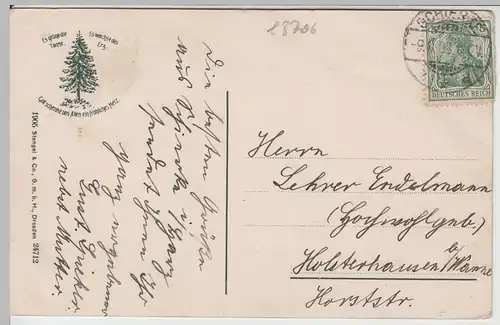 28706
Es grüne die
Tanne,
Es wachse das
Erz,
Gott schenke uns Allen ein fröhliches Herz.
1905 Stengel & Co., G. m. b. H., Dresden 24712
Die besten Grüße
aus Schierke i/Harz
sendet Ihnen Ihr
ganz ergebener
nebst Mutter.
SCHIERKE
DEUTSCHES REICH
Herrn
Lehrer Endelmann
(Hochwohlgeb.)
Holsterhausen b/ Wanne
Horststr.